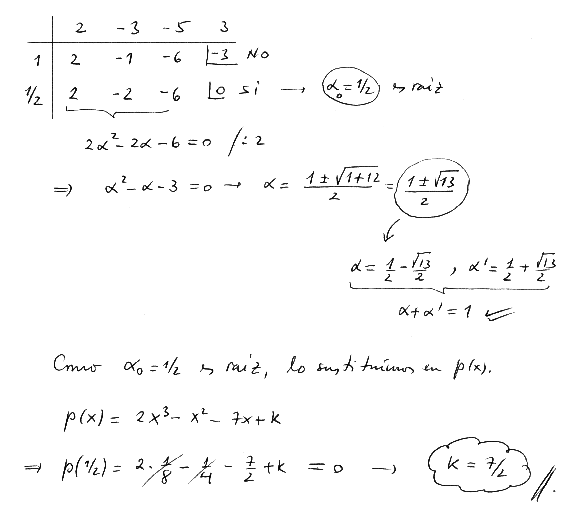 2 -3 -5 3
1 2 -1 -6 |-3 NO
1/2 2 -2 -6 |0 sí → α₀=1/2 es raíz
2α²-2α-6=0 /:2
⇒ α²-α-3=0 → α= (1±√(1+12))/2 = (1±√13)/2
α= 1/2 - √13/2 , α'= 1/2 + √13/2
α+α'=1 ✓
Como α₀=1/2 es raíz, lo sustituimos en p(x).
p(x)= 2x³-x²-7x+k
⇒ p(1/2)= 2·1/8 - 1/4 - 7/2 +k =0 → k=7/2 //.